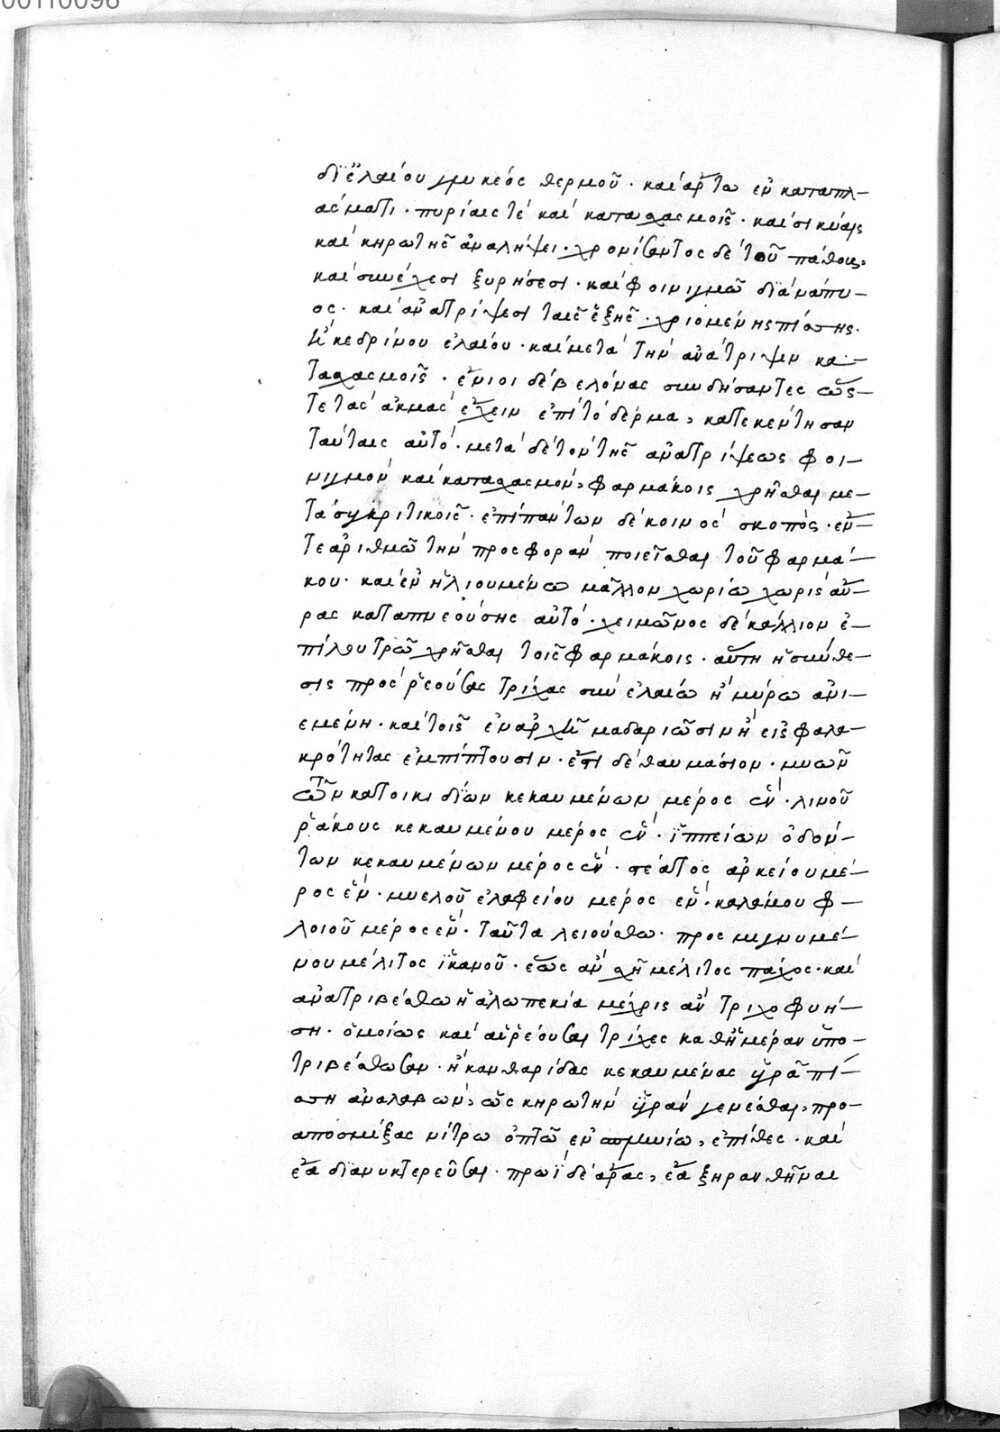 00110096
δϊ ἐλαίου γλυκέος θερμοῦ· καὶ ἄρτω ἐν καταπλ-
άσματι· πυρίαις τὲ καὶ καταχασμοῖς· καὶ σικύαις
καὶ κηρωτῆς ἀναλήψει· χρονίζοντος δὲ τοῦ πάθους,
καὶ συνέχεσι ξυρήσεσι· καὶ φοινιγμῶ διὰ νάπυ-
ος· καὶ ἀνατρίψεσι ταῖς ἑξῆς· χριομένης πίσσης.
κεδρίνου ἐλαίου· καὶ μετὰ τὴν ἀνάτριψιν κα-
ταχασμοῖς· ἔνιοι δὲ βελόνας συνδήσαντες ὥσ-
τε τὰς ἀκμὰς ἔχειν ἐπὶ τὸ δέρμα, κατεκέντησαν
ταύταις αὐτό· μετὰ δὲ τὸν τῆς ἀνατρίψεως φοι-
νιγμὸν καὶ καταχασμόν, φαρμάκοις χρῆσθαι με-
τασυγκριτικοῖς· ἐπὶ πάντων δὲ κοινὸς σκοπὸς· ἔν-
τε ἀριθμῶ τὴν προσφορὰν ποιεῖσθαι τοῦ φαρμά-
κου· καὶ ἐν ἡλιουμένω μᾶλλον χωρίω χωρὶς αὔ-
ρας καταπνεούσης αὐτό· χειμῶνος δὲ κάλλιον ἐ-
πὶ λουτρῶ χρῆσθαι τοῖς φαρμάκοις· αὕτη ἡ σύνθε-
σις πρὸς ῥεούσας τρίχας σὺν ἐλαίω ἢ μύρω ἀνι-
εμένη· καὶ τοῖς ἐν ἀρχῆ μαδαριῶσιν ἢ εἰς φαλα-
κρότητας ἐμπίπτουσιν· ἔστι δὲ θαυμάσιον· μυῶν
τῶν κατοικιδίων κεκαυμένων μέρος ἕν· λινοῦ
ῥάκους κεκαυμένου μέρος ἕν· ἱππείων ὀδόν-
των κεκαυμένων μέρος ἕν· στέατος ἀρκείου μέ-
ρος ἕν· μυελοῦ ἐλαφείου μέρος ἕν· καλάμου φ-
λοιοῦ μέρος ἕν· ταῦτα λειούσθω· προσμιγνυμέ-
νου μέλιτος ἱκανοῦ· ἕως ἂν σχῆ μέλιτος πάχος· καὶ
ἀνατριβέσθω ἡ ἀλωπεκία μέχρις ἂν τριχοφυή-
ση· ὁμοίως καὶ αἱ ῥέουσαι τρίχες καθ' ἡμέραν ὑπο-
τριβέσθωσαν· ἢ κανθαρίδας κεκαυμένας ὑγρᾶ πί-
σση ἀναλαβών, ὡς κηρωτὴν ὑγρὰν γενέσθαι, προ-
αποσμήξας νίτρω ὀπτῶ ἐν ἀμμωνίω, ἐπίθες· καὶ
ἔα διανυκτερεῦσαι· πρωῒ δὲ ἄρας, ἔα ξηρανθῆναι